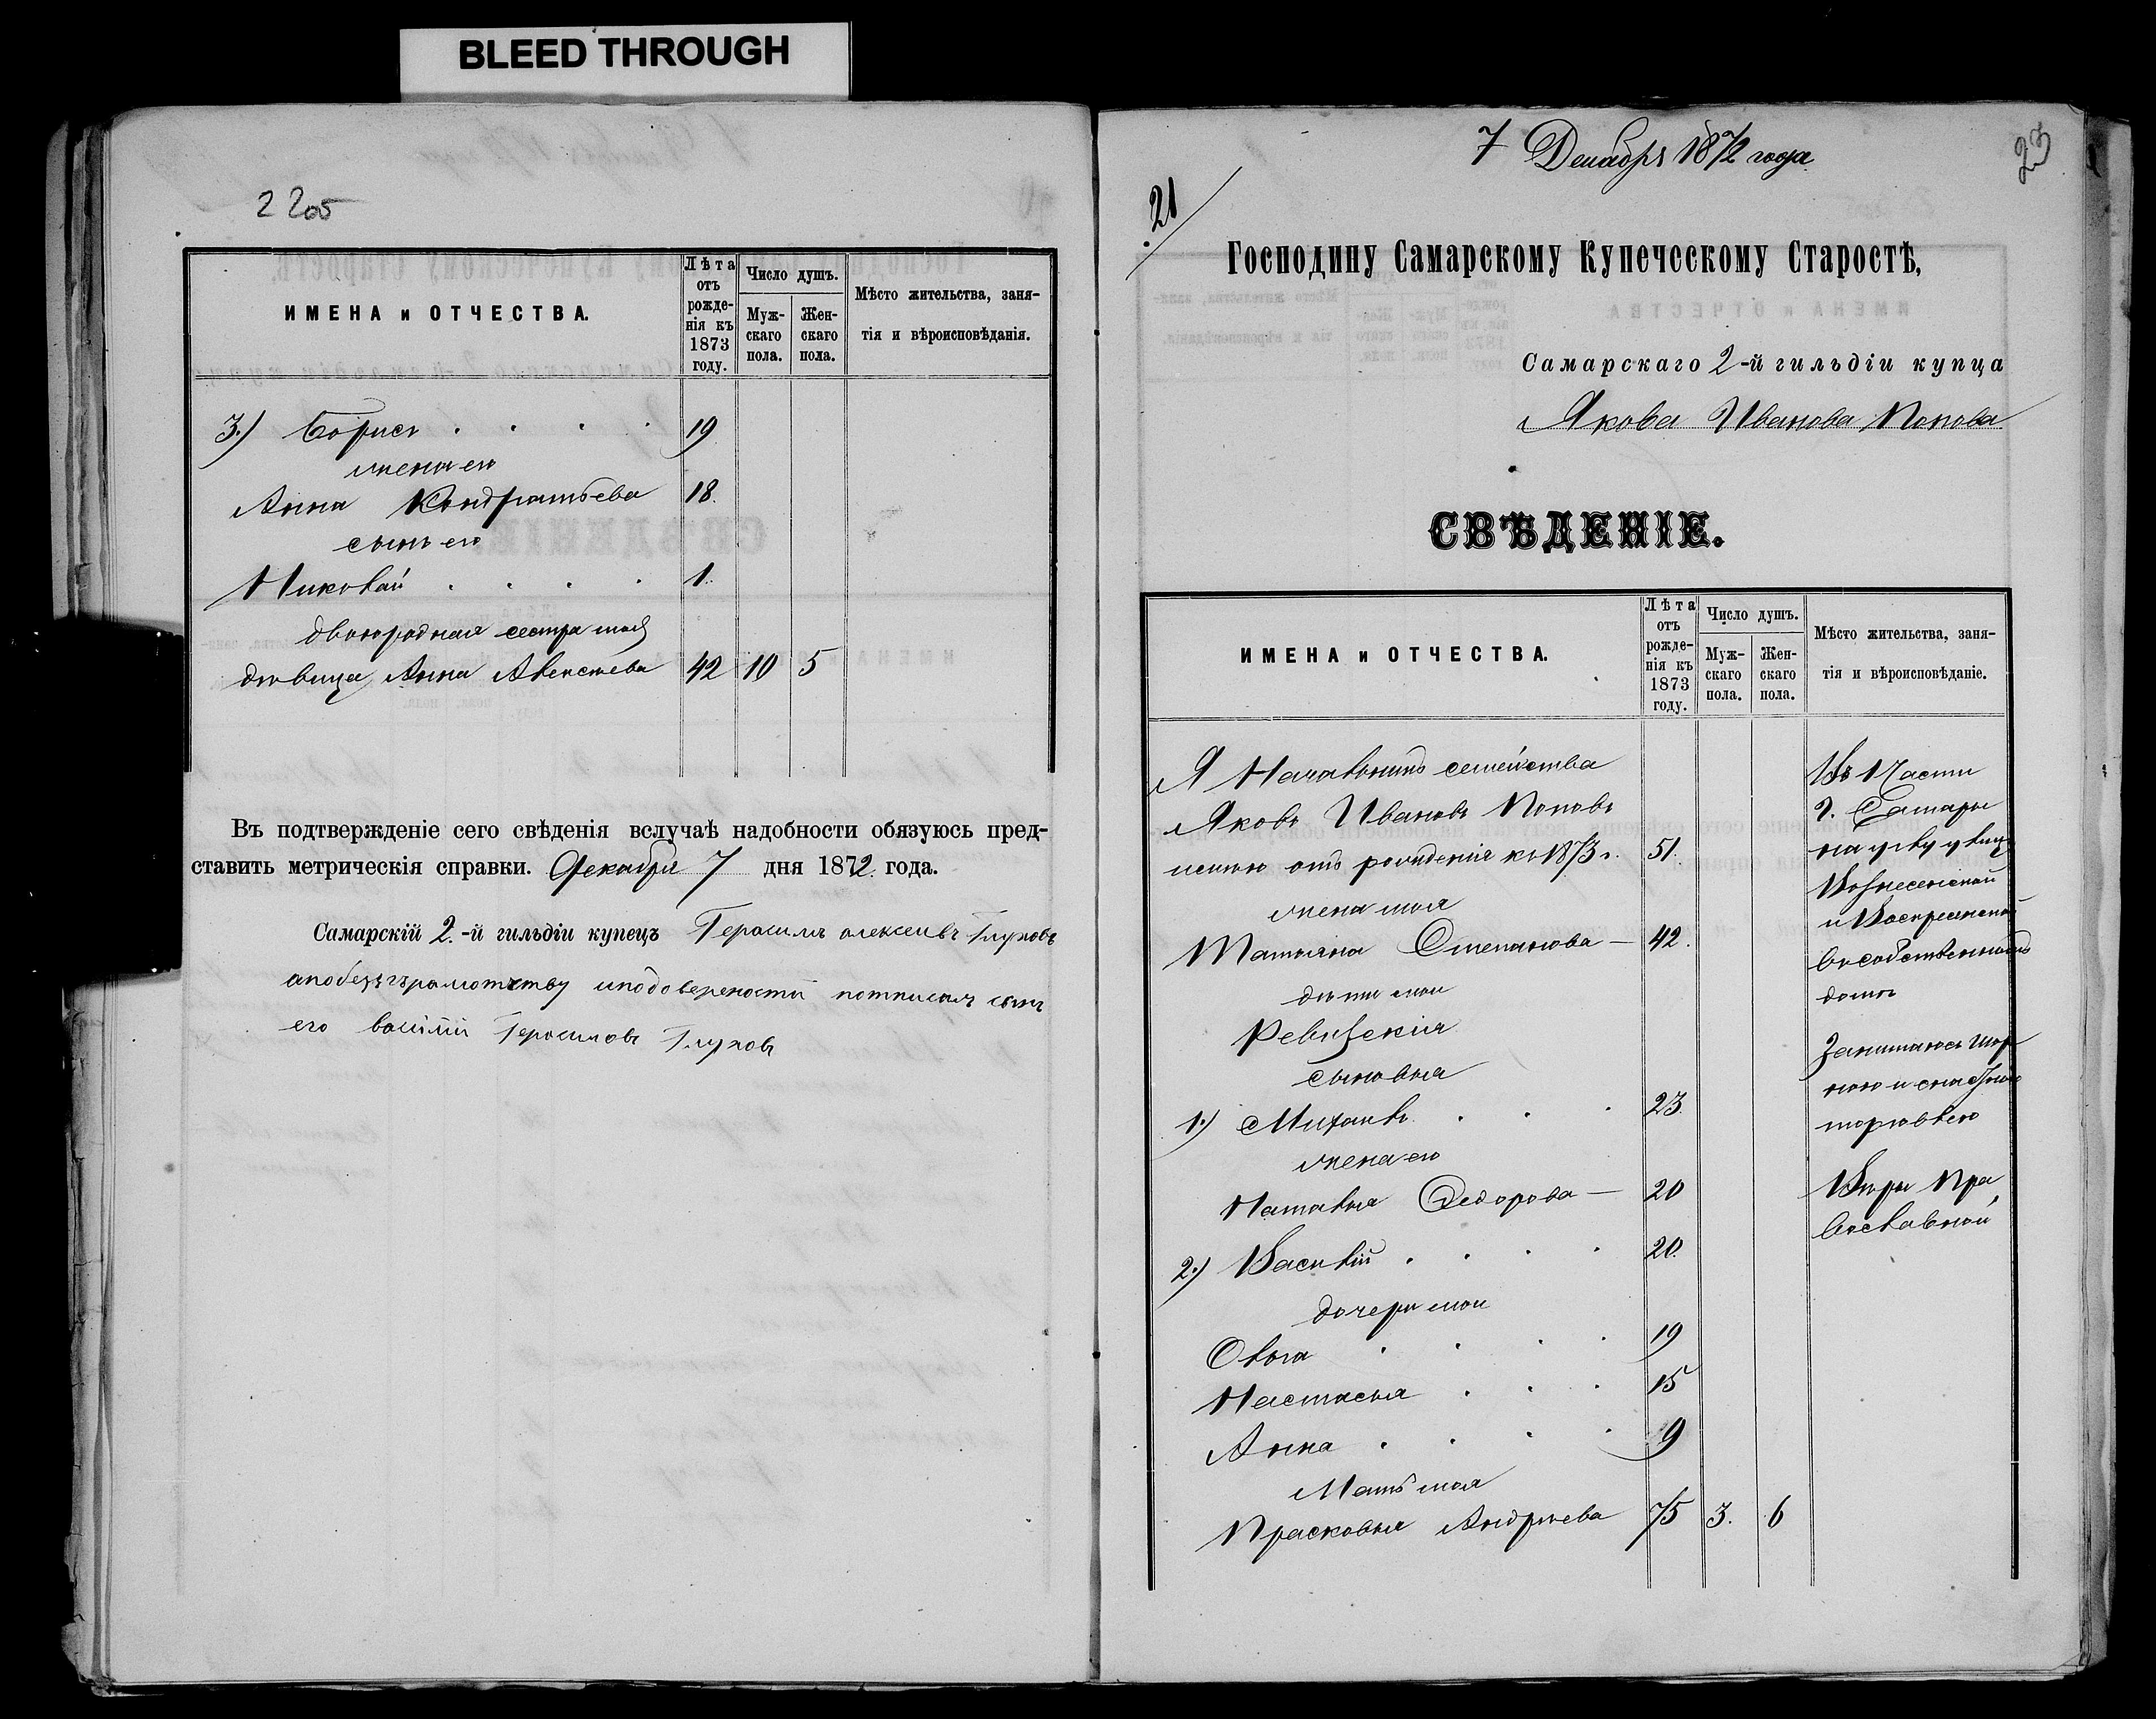 BLEED THROUGH
2 205
ИМЕНА и ОТЧЕСТВА.
Лѣта отъ рожде-нія къ 1873 году.
Число душъ.
Муж-скаго пола.
Жен-скаго пола.
Мѣсто жительства, заня-
тія и вѣроисповѣданія.
3.) Борисъ . . . . 19
жена его
Анна Кондратьева 18.
сынъ его
Николай . . . . 1.
двоюродная сестра моя
дѣвица Анна Алексѣева 42 10 5
Въ подтвержденіе сего свѣденія вслучаѣ надобности обязуюсь пред-
ставить метрическія справки. Декабря 7 дня 1872. года.
Самарскій 2.-й гильдіи купецъ Герасимъ алексеивъ Глуховъ
апобезграмотству иподовереності потписалъ сынъ
его василій Герасимовъ Глуховъ
7 Декабря 1872 года
23
21
Господину Самарскому Купеческому Старостѣ,
Самарскаго 2-й гильдіи купца
Якова Иванова Попова
СВѢДЕНІЕ.
ИМЕНА и ОТЧЕСТВА.
Лѣта отъ рожде-нія къ 1873 году.
Число душъ.
Муж-скаго пола.
Жен-скаго пола.
Мѣсто жительства, заня-
тія и вѣроисповѣданіе.
Я Начальникъ семейства
Яковъ Ивановъ Поповъ
имѣю отъ рожденія къ 1873 г. 51.
жена моя
Татьяна Степанова — 42.
дѣти мои
Ревизскія
сыновья
1.) Михаилъ . . . 23.
жена его
Наталья Федорова — 20
2.) Василій . . . . 20.
дочери мои
Ольга . . . . 19
Настасья . . . 15
Анна . . . . 9
Мать моя
Прасковья Андреева 75 3. 6
Въ 1 Части
г. Самары
на углу улицъ
Вознесенской
и Воскресенской
въ собственномъ
домѣ
Занимаюсь
торговлею
Вѣры Пра
вославной